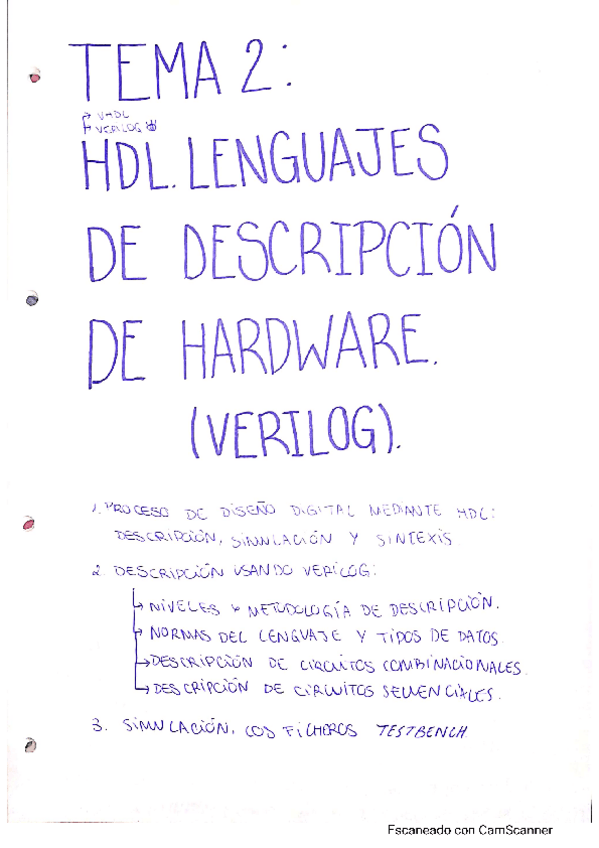 TEMA 2:
→ VHDL
→ VERILOG
HDL. LENGUAJES
DE DESCRIPCIÓN
DE HARDWARE.
(VERILOG).
1. PROCESO DE DISEÑO DIGITAL MEDIANTE HDL:
DESCRIPCIÓN, SIMULACIÓN Y SINTEXIS
2. DESCRIPCIÓN USANDO VERILOG:
→ NIVELES Y METODOLOGÍA DE DESCRIPCIÓN.
→ NORMAS DEL LENGUAJE Y TIPOS DE DATOS
→ DESCRIPCIÓN DE CIRCUITOS COMBINACIONALES.
→ DESCRIPCIÓN DE CIRCUITOS SECUENCIALES.
3. SIMULACIÓN, LOS FICHEROS TESTBENCH.
Escaneado con CamScanner